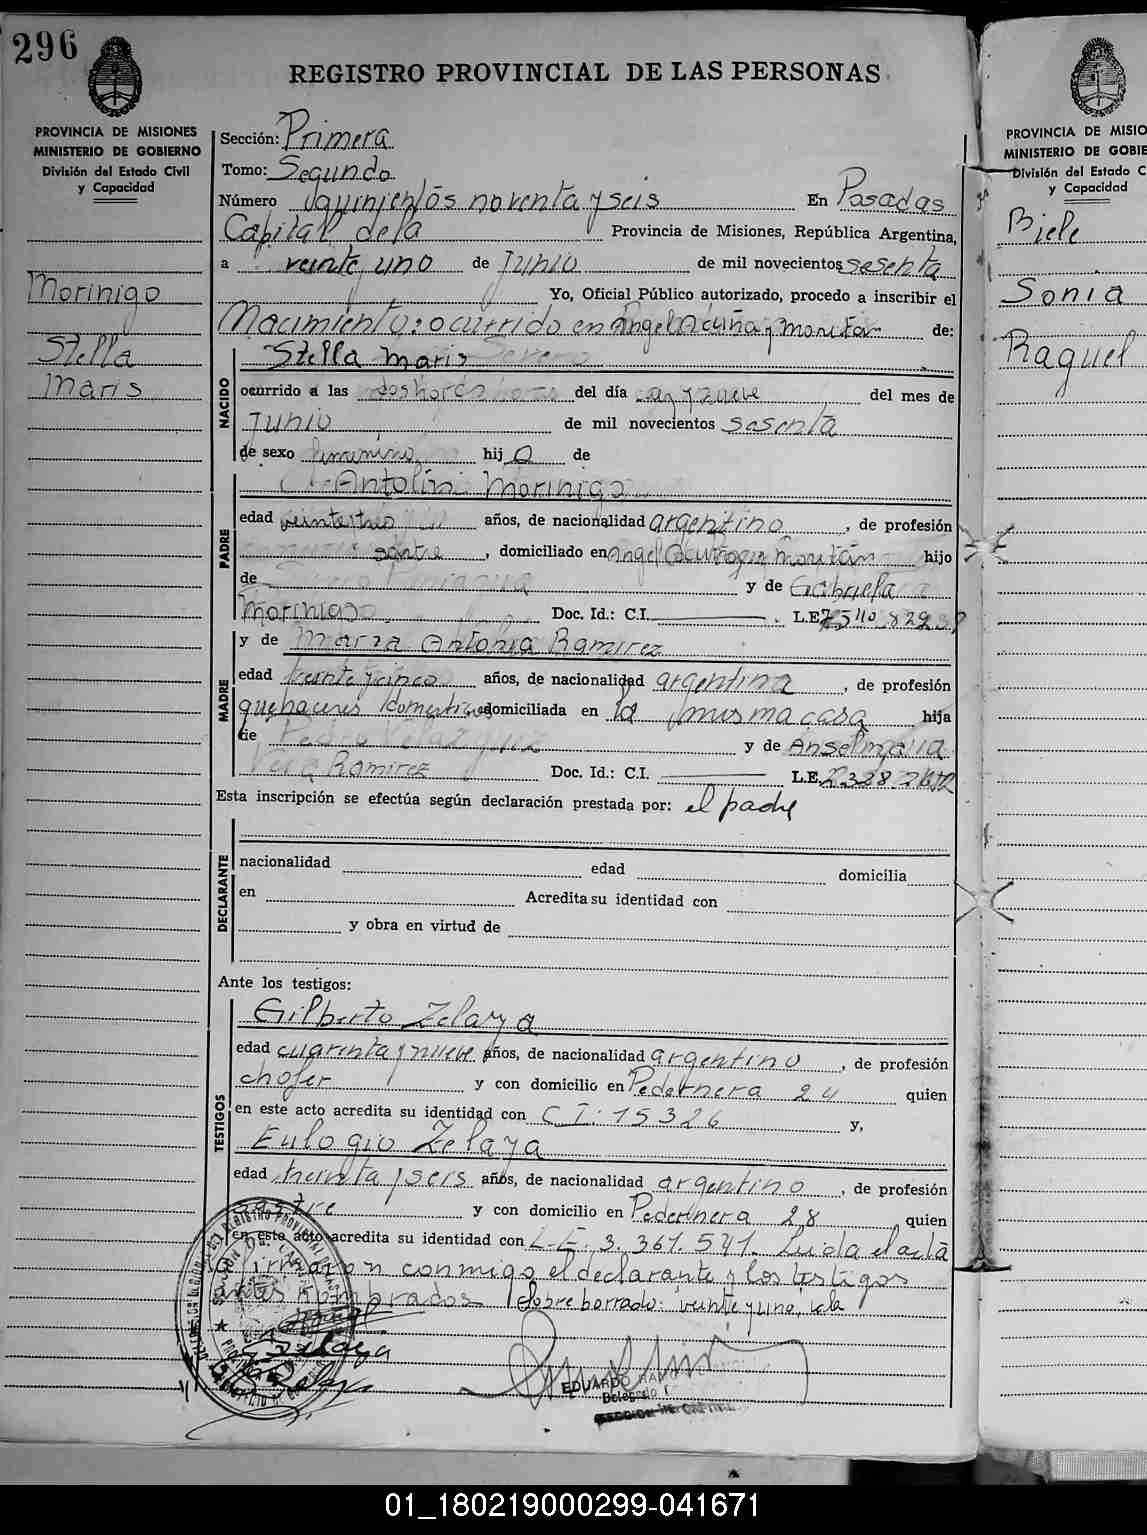 296
PROVINCIA DE MISIONES
MINISTERIO DE GOBIERNO
División del Estado Civil
y Capacidad
Morinigo
Stella
Maris
REGISTRO PROVINCIAL DE LAS PERSONAS
Sección: Primera
Tomo: Segundo
Número quinientos noventa y seis En Posadas
Capital de la Provincia de Misiones, República Argentina,
a veinte y uno de Junio de mil novecientos sesenta
Yo, Oficial Público autorizado, procedo a inscribir el
Nacimiento: ocurrido en Angel Acuña y de:
NACIDO
Stella Maris
ocurrido a las dos horas del día del mes de
Junio de mil novecientos sesenta
de sexo femenino hij a de
PADRE
Antolin Morinigo
edad veinte y tres años, de nacionalidad argentino, de profesión
sastre, domiciliado en Angel Acuña y hijo
de y de Gabriela
Morinigo Doc. Id.: C.I. L.E.
MADRE
y de Maria Antonia Ramirez
edad años, de nacionalidad argentina, de profesión
quehaceres domesticos domiciliada en la misma casa hija
de Pedro Velazquez y de Anselma
Vera Ramirez Doc. Id.: C.I. L.E.
Esta inscripción se efectúa según declaración prestada por: el padre
DECLARANTE
nacionalidad edad domicilia
en Acredita su identidad con
y obra en virtud de
Ante los testigos:
TESTIGOS
Gilberto Zelaya
edad cuarenta y nueve años, de nacionalidad argentino, de profesión
chofer y con domicilio en Pedernera 24 quien
en este acto acredita su identidad con C I: 15326 y,
Eulogio Zelaya
edad treinta y seis años, de nacionalidad argentino, de profesión
sastre y con domicilio en Pedernera 28 quien
en este acto acredita su identidad con L.E. 3.367.541. Leida el acta
firmaron conmigo el declarante y los testigos
antes nombrados Sobre borrado: veinte y uno, vale
EDUARDO
Delegado
PROVINCIA DE MISIO
MINISTERIO DE GOBIE
División del Estado C
y Capacidad
Biele
Sonia
Raquel
01_180219000299-041671